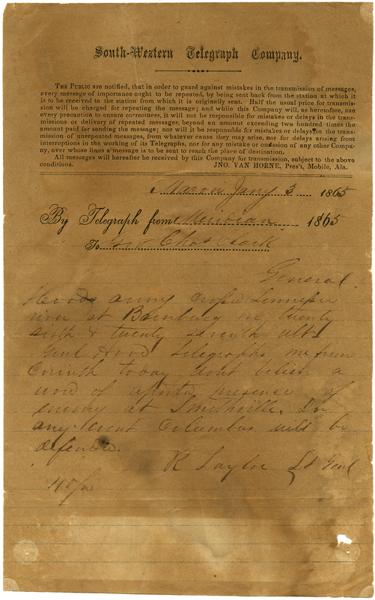 South-Western Telegraph Company.
THE PUBLIC are notified, that in order to guard against mistakes in the transmission of messages,
every message of importance ought to be repeated, by being sent back from the station at which it
is to be received to the station from which it is originally sent. Half the usual price for transmis-
sion will be charged for repeating the message; and while this Company will, as heretofore, use
every precaution to ensure correctness, it will not be responsible for mistakes or delays in the trans-
missions or delivery of repeated messages, beyond an amount exceeding two hundred times the
amount paid for sending the message; nor will it be responsible for mistakes or delays in the trans-
mission of unrepeated messages, from whatever cause they may arise, nor for delays arising from
interruptions in the working of its Telegraphs, nor for any mistake or omission of any other Compa-
ny, over whose lines a message is to be sent to reach the place of destination.
All messages will hereafter be received by this Company for transmission, subject to the above
conditions.
JNO. VAN HORNE, Pres't, Mobile, Ala.
Macon Jany 3 1865
By Telegraph from Meridian 1865
To Gov Chas Clark
General
Hoods army crossd Tennessee
river at Bainbridge twenty
sixth & twenty seventh ult
Genl Hood telegraphs me from
Corinth today dont believe a
word of presence of
enemy at Smithville. In
any event Columbus will be
defended.
R Taylor Lt Genl